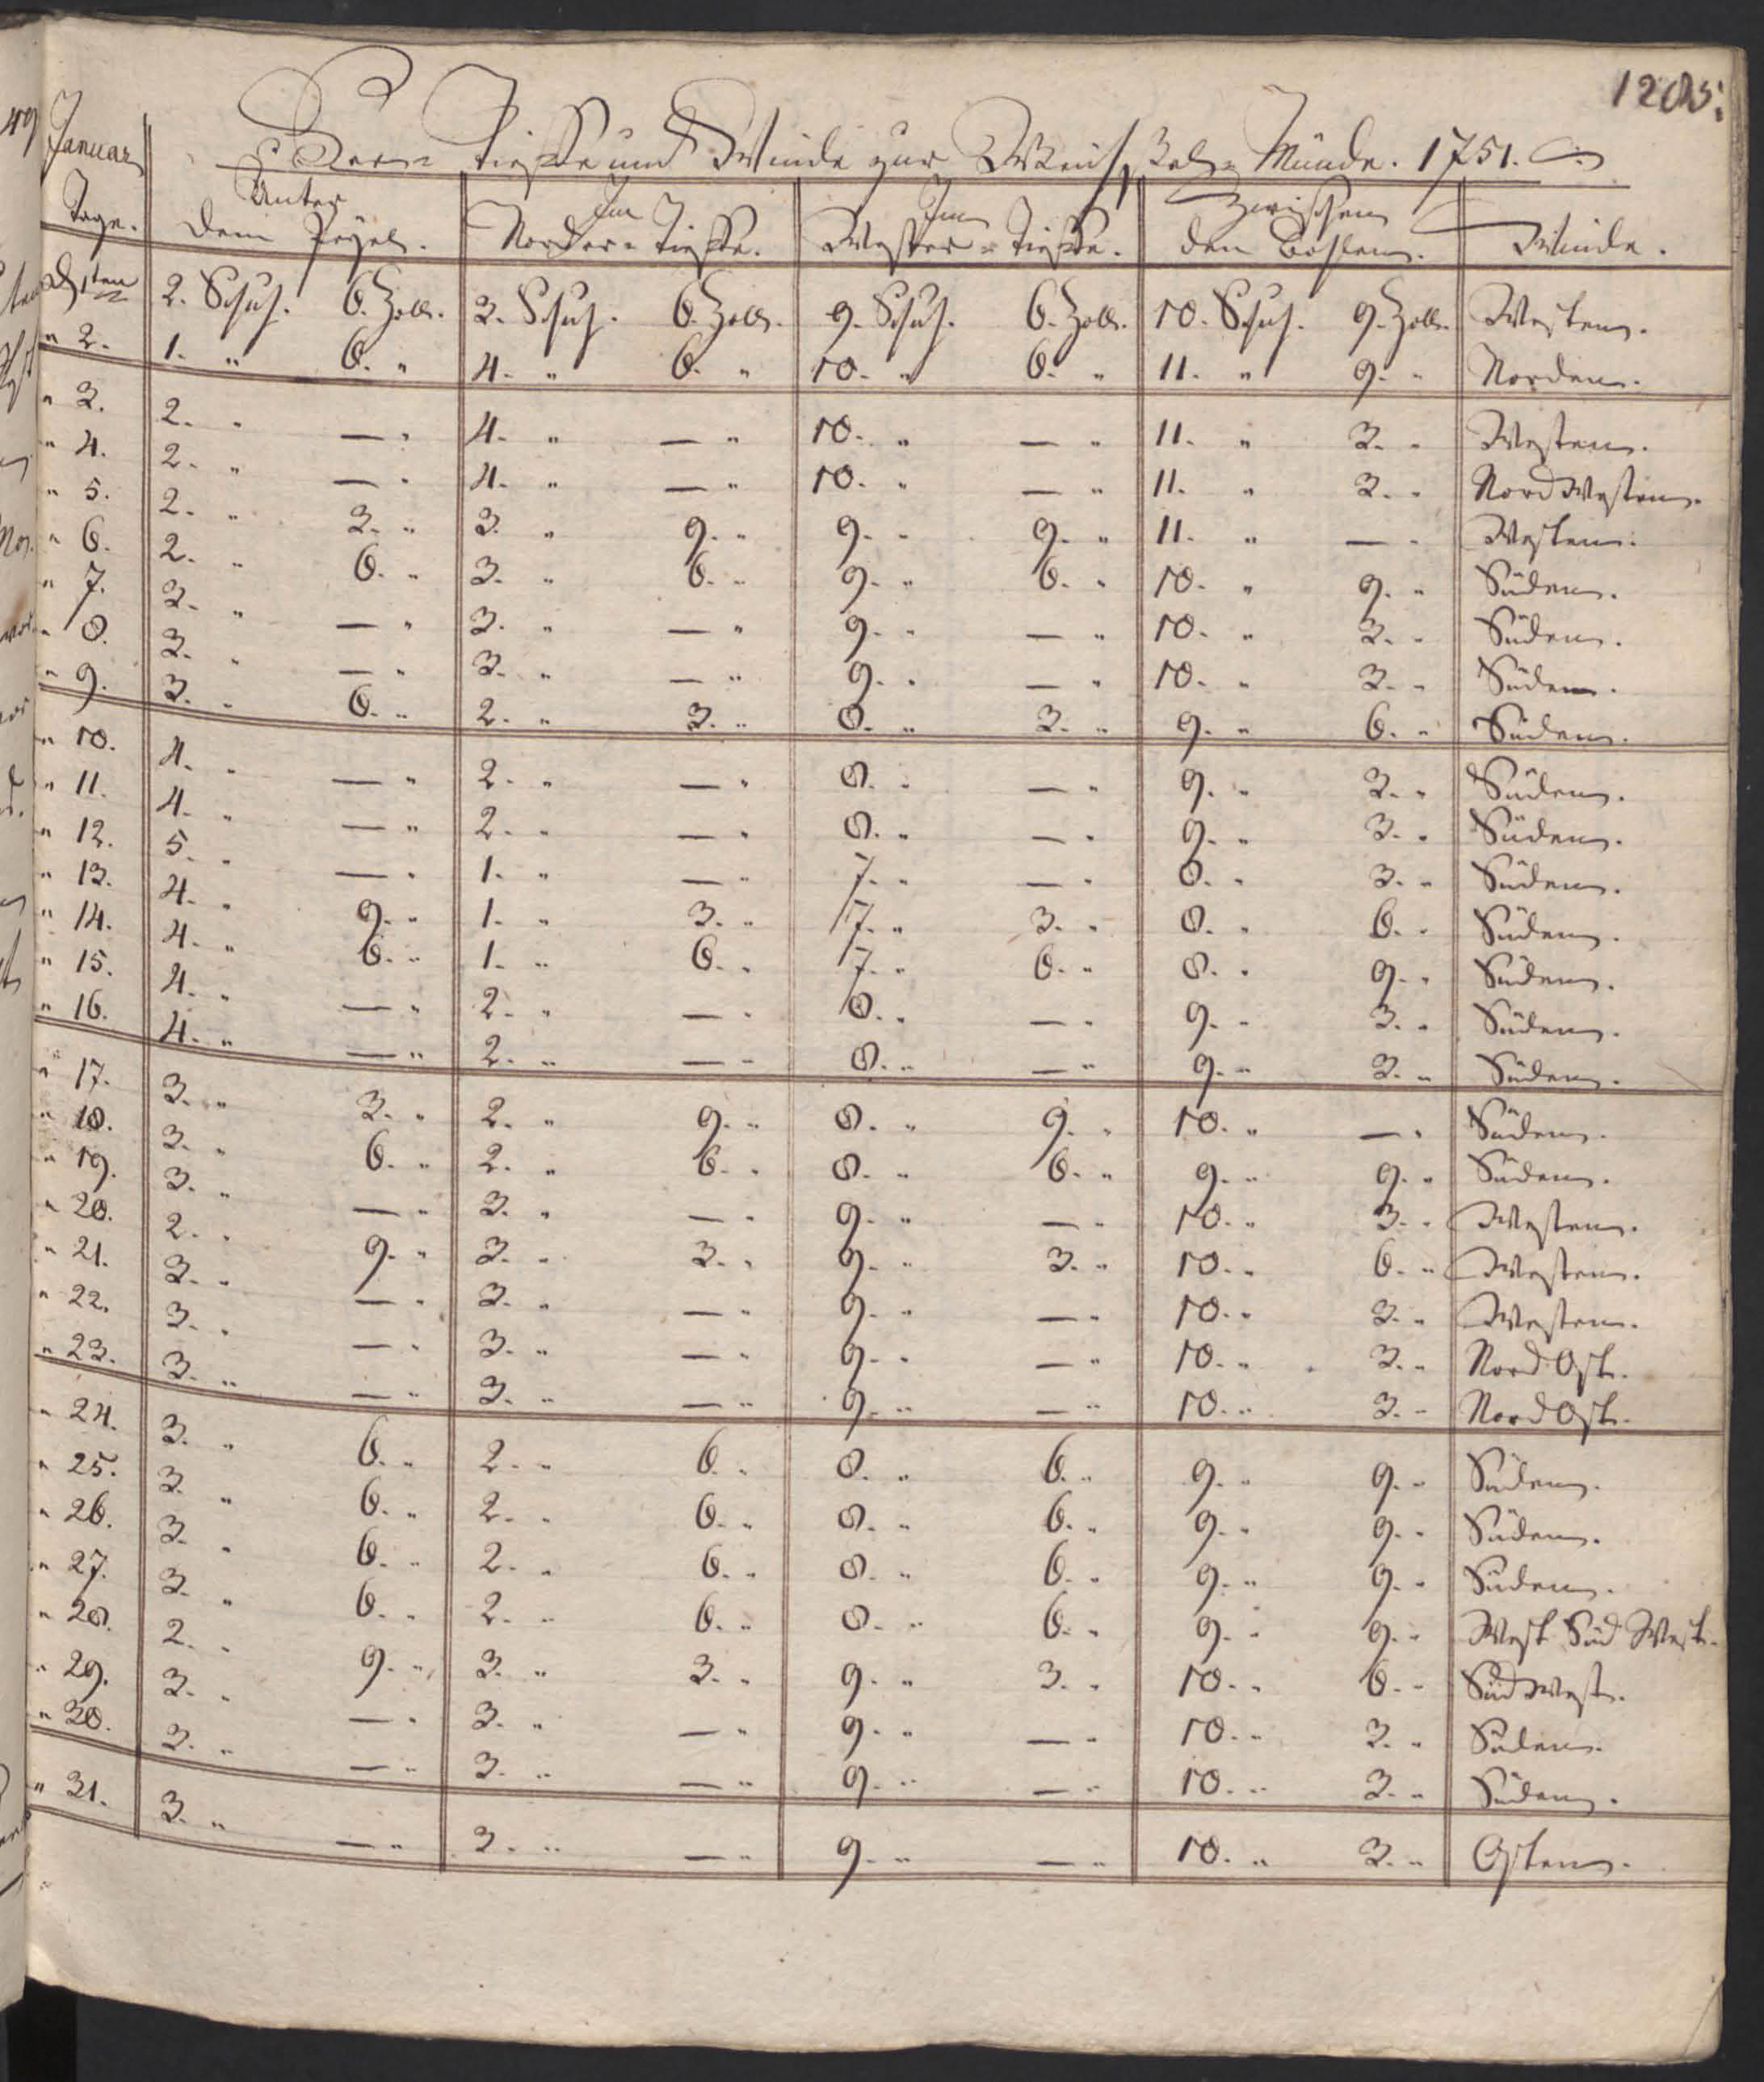 Januar
Waßer= Tieffe und Winde zur Weichsel= Münde. 1751.
Tage. Unter dem Pegel. Im Norder= Tieffe. Im Wester= Tieffe. Zwischen den Winde.
d 1ten 2. Schuh. 6. Zoll. 3. Schuh. 6. Zoll. 9. Schuh. 6. Zoll. 10. Schuh. 9. Zoll. Westen.
" 2. 1. " 6. " 4. " 6. " 10. " 6. " 11. " 9. " Norden.
" 3. 2. " — " 4. " — " 10. " — " 11. " 3. " Westen.
" 4. 2. " — " 4. " — " 10. " — " 11. " 3. " Nord Westen.
" 5. 2. " 3. " 3. " 9. " 9. " 9. " 11. " — " Westen.
" 6. 2. " 6. " 3. " 6. " 9. " 6. " 10. " 9. " Süden.
" 7. 3. " — " 3. " — " 9. " — " 10. " 3. " Süden.
" 8. 3. " — " 3. " — " 9. " — " 10. " 3. " Süden.
" 9. 3. " 6. " 2. " 3. " 8. " 3. " 9. " 6. " Süden.
" 10. 4. " — " 2. " — " 8. " — " 9. " 3. " Süden.
" 11. 4. " — " 2. " — " 8. " — " 9. " 3. " Süden.
" 12. 5. " — " 1. " — " 7. " — " 8. " 3. " Süden.
" 13. 4. " 9. " 1. " 3. " 7. " 3. " 8. " 6. " Süden.
" 14. 4. " 6. " 1. " 6. " 7. " 6. " 8. " 9. " Süden.
" 15. 4. " — " 2. " — " 8. " — " 9. " 3. " Süden.
" 16. 4. " — " 2. " — " 8. " — " 9. " 3. " Süden.
" 17. 3. " 3. " 2. " 9. " 8. " 9. " 10. " — " Süden.
" 18. 3. " 6. " 2. " 6. " 8. " 6. " 9. " 9. " Süden.
" 19. 3. " — " 3. " — " 9. " — " 10. " 3. " Westen.
" 20. 2. " 9. " 3. " 3. " 9. " 3. " 10. " 6. " Westen.
" 21. 3. " — " 3. " — " 9. " — " 10. " 3. " Westen.
" 22. 3. " — " 3. " — " 9. " — " 10. " 3. " Nord Ost.
" 23. 3. " — " 3. " — " 9. " — " 10. " 3. " Nord Ost.
" 24. 3. " 6. " 2. " 6. " 8. " 6. " 9. " 9. " Süden.
" 25. 3. " 6. " 2. " 6. " 8. " 6. " 9. " 9. " Süden.
" 26. 3. " 6. " 2. " 6. " 8. " 6. " 9. " 9. " Süden.
" 27. 3. " 6. " 2. " 6. " 8. " 6. " 9. " 9. " West Süd West.
" 28. 2. " 9. " 3. " 3. " 9. " 3. " 10. " 6. " Süd West.
" 29. 3. " — " 3. " — " 9. " — " 10. " 3. " Süden.
" 30. 3. " — " 3. " — " 9. " — " 10. " 3. " Süden.
" 31. 3. " — " 3. " — " 9. " — " 10. " 3. " Osten.